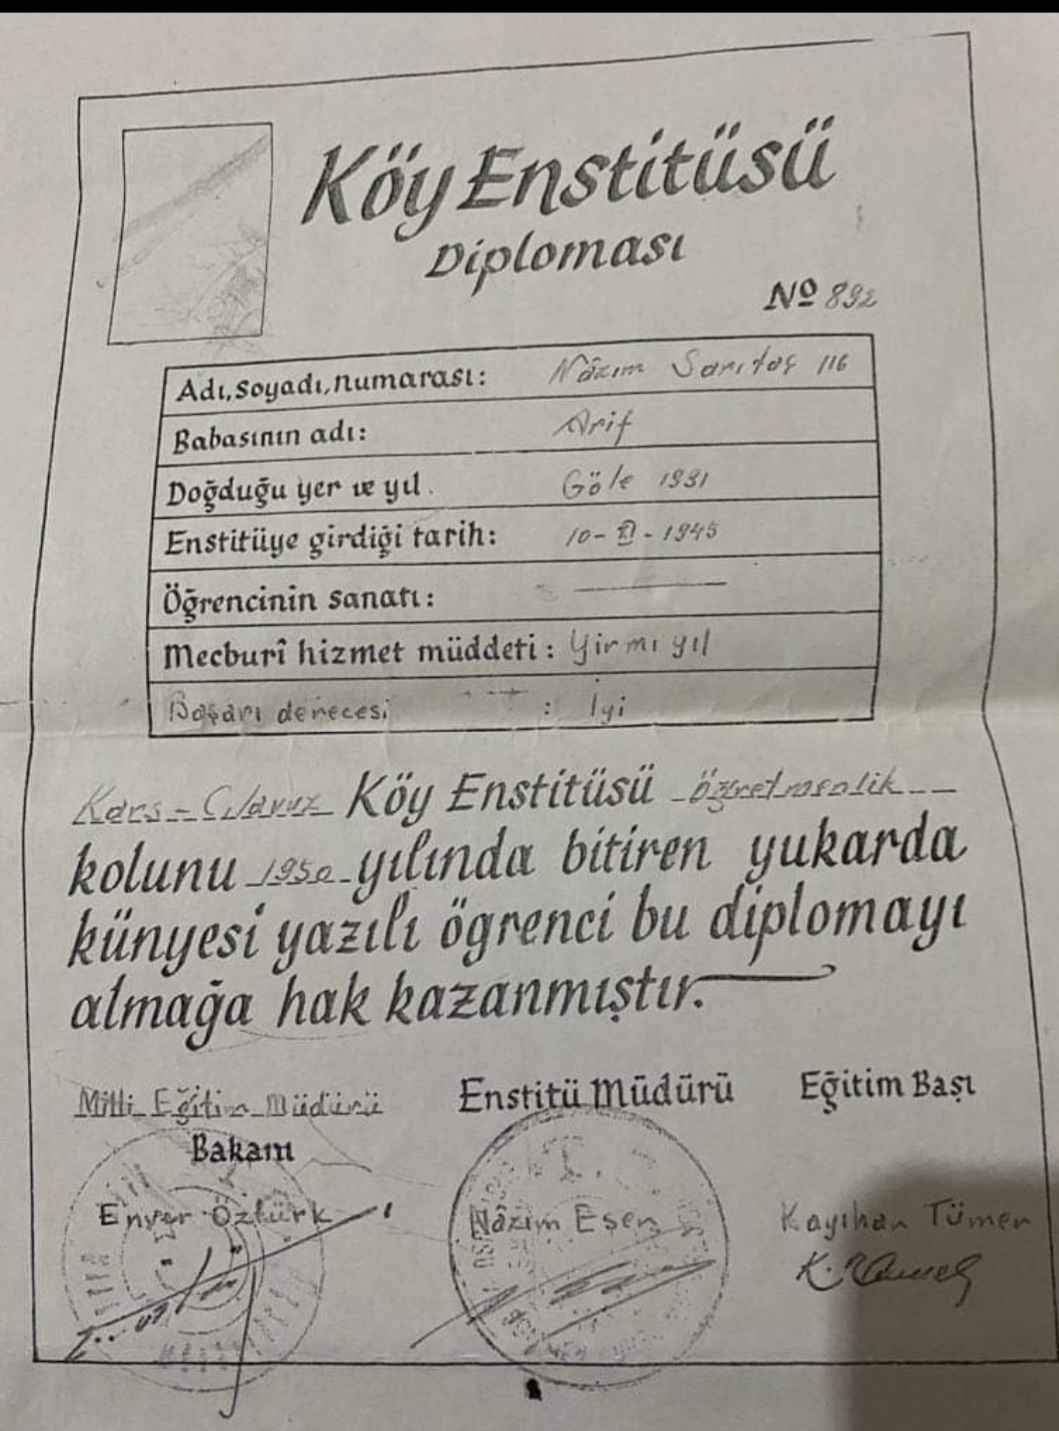 Köy Enstitüsü
Diploması
Nº 892
Adı, soyadı, numarası: Nâzım Sarıtaş 116
Babasının adı: Arif
Doğduğu yer ve yıl. Göle 1931
Enstitüye girdiği tarih: 10- XI - 1945
Öğrencinin sanatı:
Mecburî hizmet müddeti: Yirmi yıl
Başarı derecesi : İyi
Kars - Cılavuz Köy Enstitüsü öğretmenlik
kolunu 1950 yılında bitiren yukarda
künyesi yazılı ögrenci bu diplomayı
almağa hak kazanmıştır.
Milli Eğitim Müdürü Enstitü Müdürü Eğitim Başı
Bakanı
Enver Öztürk Nâzım Esen Kayıhan Tümer